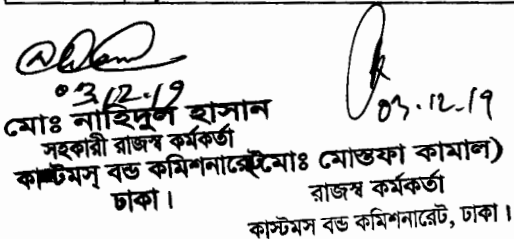 03.12.19
মোঃ নাহিদুল হাসান
সহকারী রাজস্ব কর্মকর্তা
কাস্টমস্ বন্ড কমিশনারেট
ঢাকা।
03.12.19
মোঃ মোস্তফা কামাল)
রাজস্ব কর্মকর্তা
কাস্টমস বন্ড কমিশনারেট, ঢাকা।